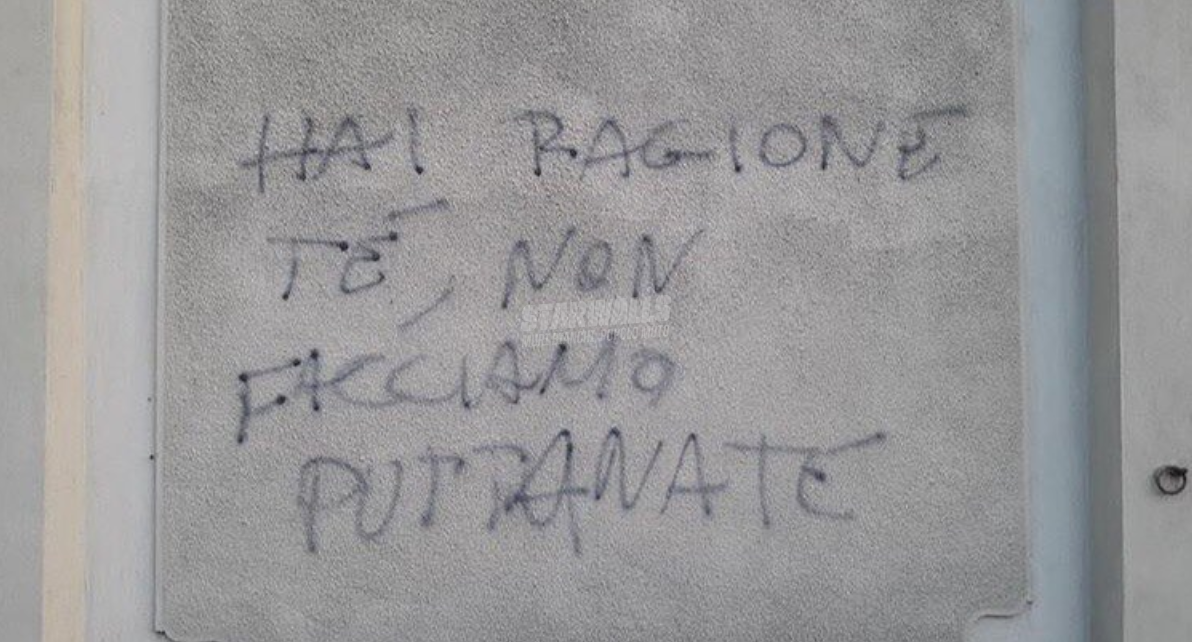 HAI RAGIONE
TE, NON
FACCIAMO
PUTTANATE
STARWALLS